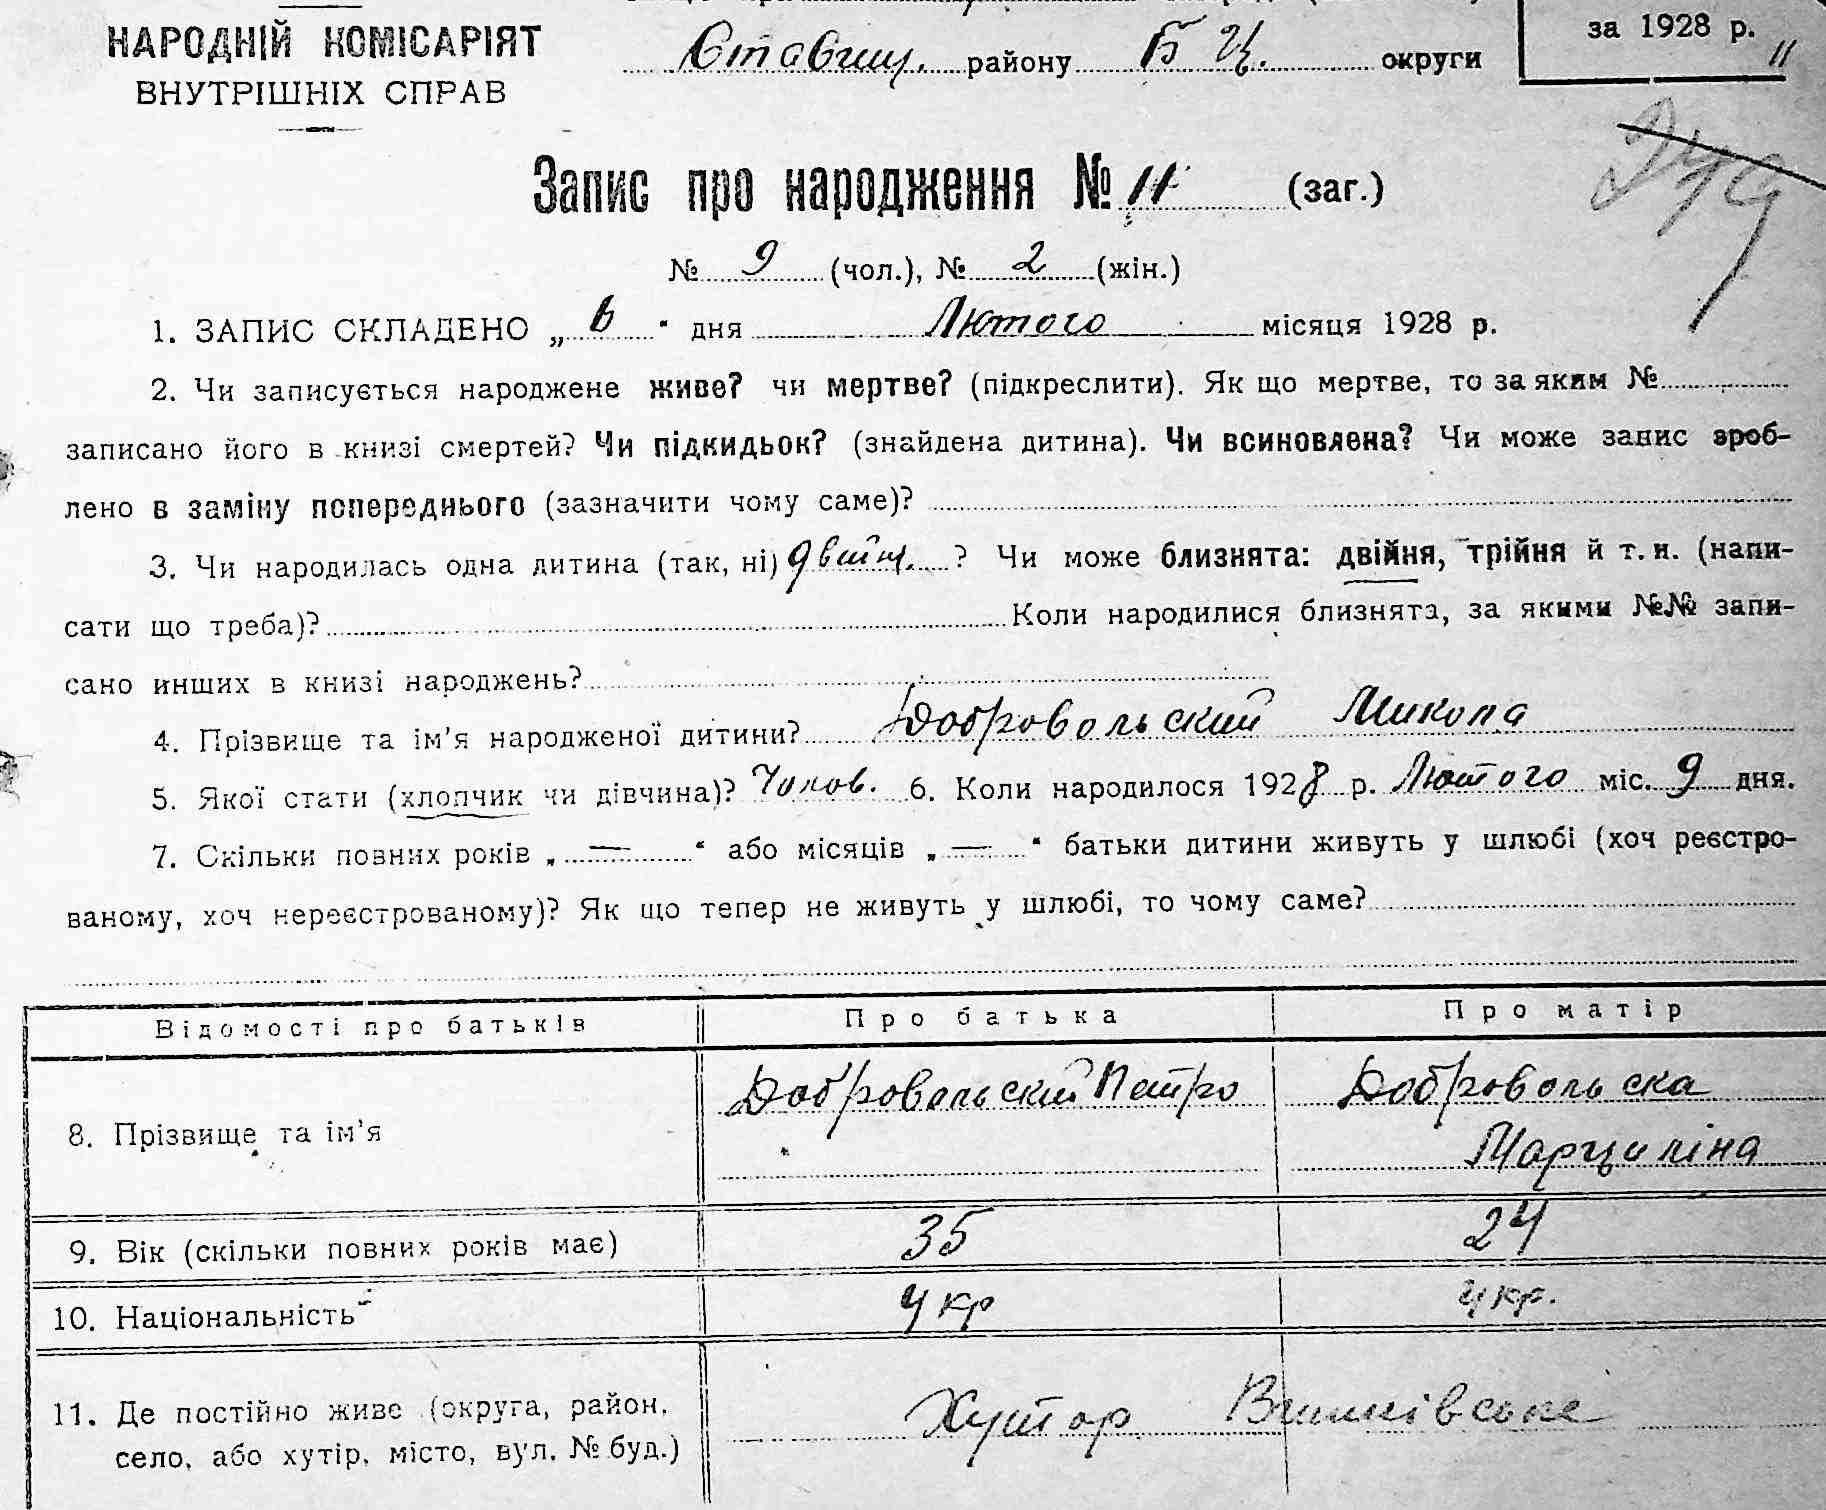 НАРОДНІЙ КОМІСАРІЯТ
ВНУТРІШНІХ СПРАВ
Ставищ. району Б Ц. округи
за 1928 р.
11
Запис про народження № 11 (заг.)
№ 9 (чол.), № 2 (жін.)
1. ЗАПИС СКЛАДЕНО „ 6 “ дня Лютого місяця 1928 р.
2. Чи записується народжене живе? чи мертве? (підкреслити). Як що мертве, то за яким №
записано його в книзі смертей? Чи підкидьок? (знайдена дитина). Чи всиновлена? Чи може запис зроб-
лено в заміну попереднього (зазначити чому саме)?
3. Чи народилась одна дитина (так, ні) двійн. ? Чи може близнята: двійня, трійня й т. и. (напи-
сати що треба)? Коли народилися близнята, за якими №№ запи-
сано инших в книзі народжень?
4. Прізвище та ім’я народженої дитини? Добровольский Микола
5. Якої стати (хлопчик чи дівчина)? Чолов. 6. Коли народилося 1928 р. Лютого міс. 9 дня.
7. Скільки повних років „ — “ або місяців „ — “ батьки дитини живуть у шлюбі (хоч реєстро-
ваному, хоч нереєстрованому)? Як що тепер не живуть у шлюбі, то чому саме?
Відомості про батьків Про батька Про матір
8. Прізвище та ім’я Добровольский Петро Добровольска
Марциліна
9. Вік (скільки повних років має) 35 24
10. Національність укр укр.
11. Де постійно живе (округа, район, Хутор
село, або хутір, місто, вул. № буд.)